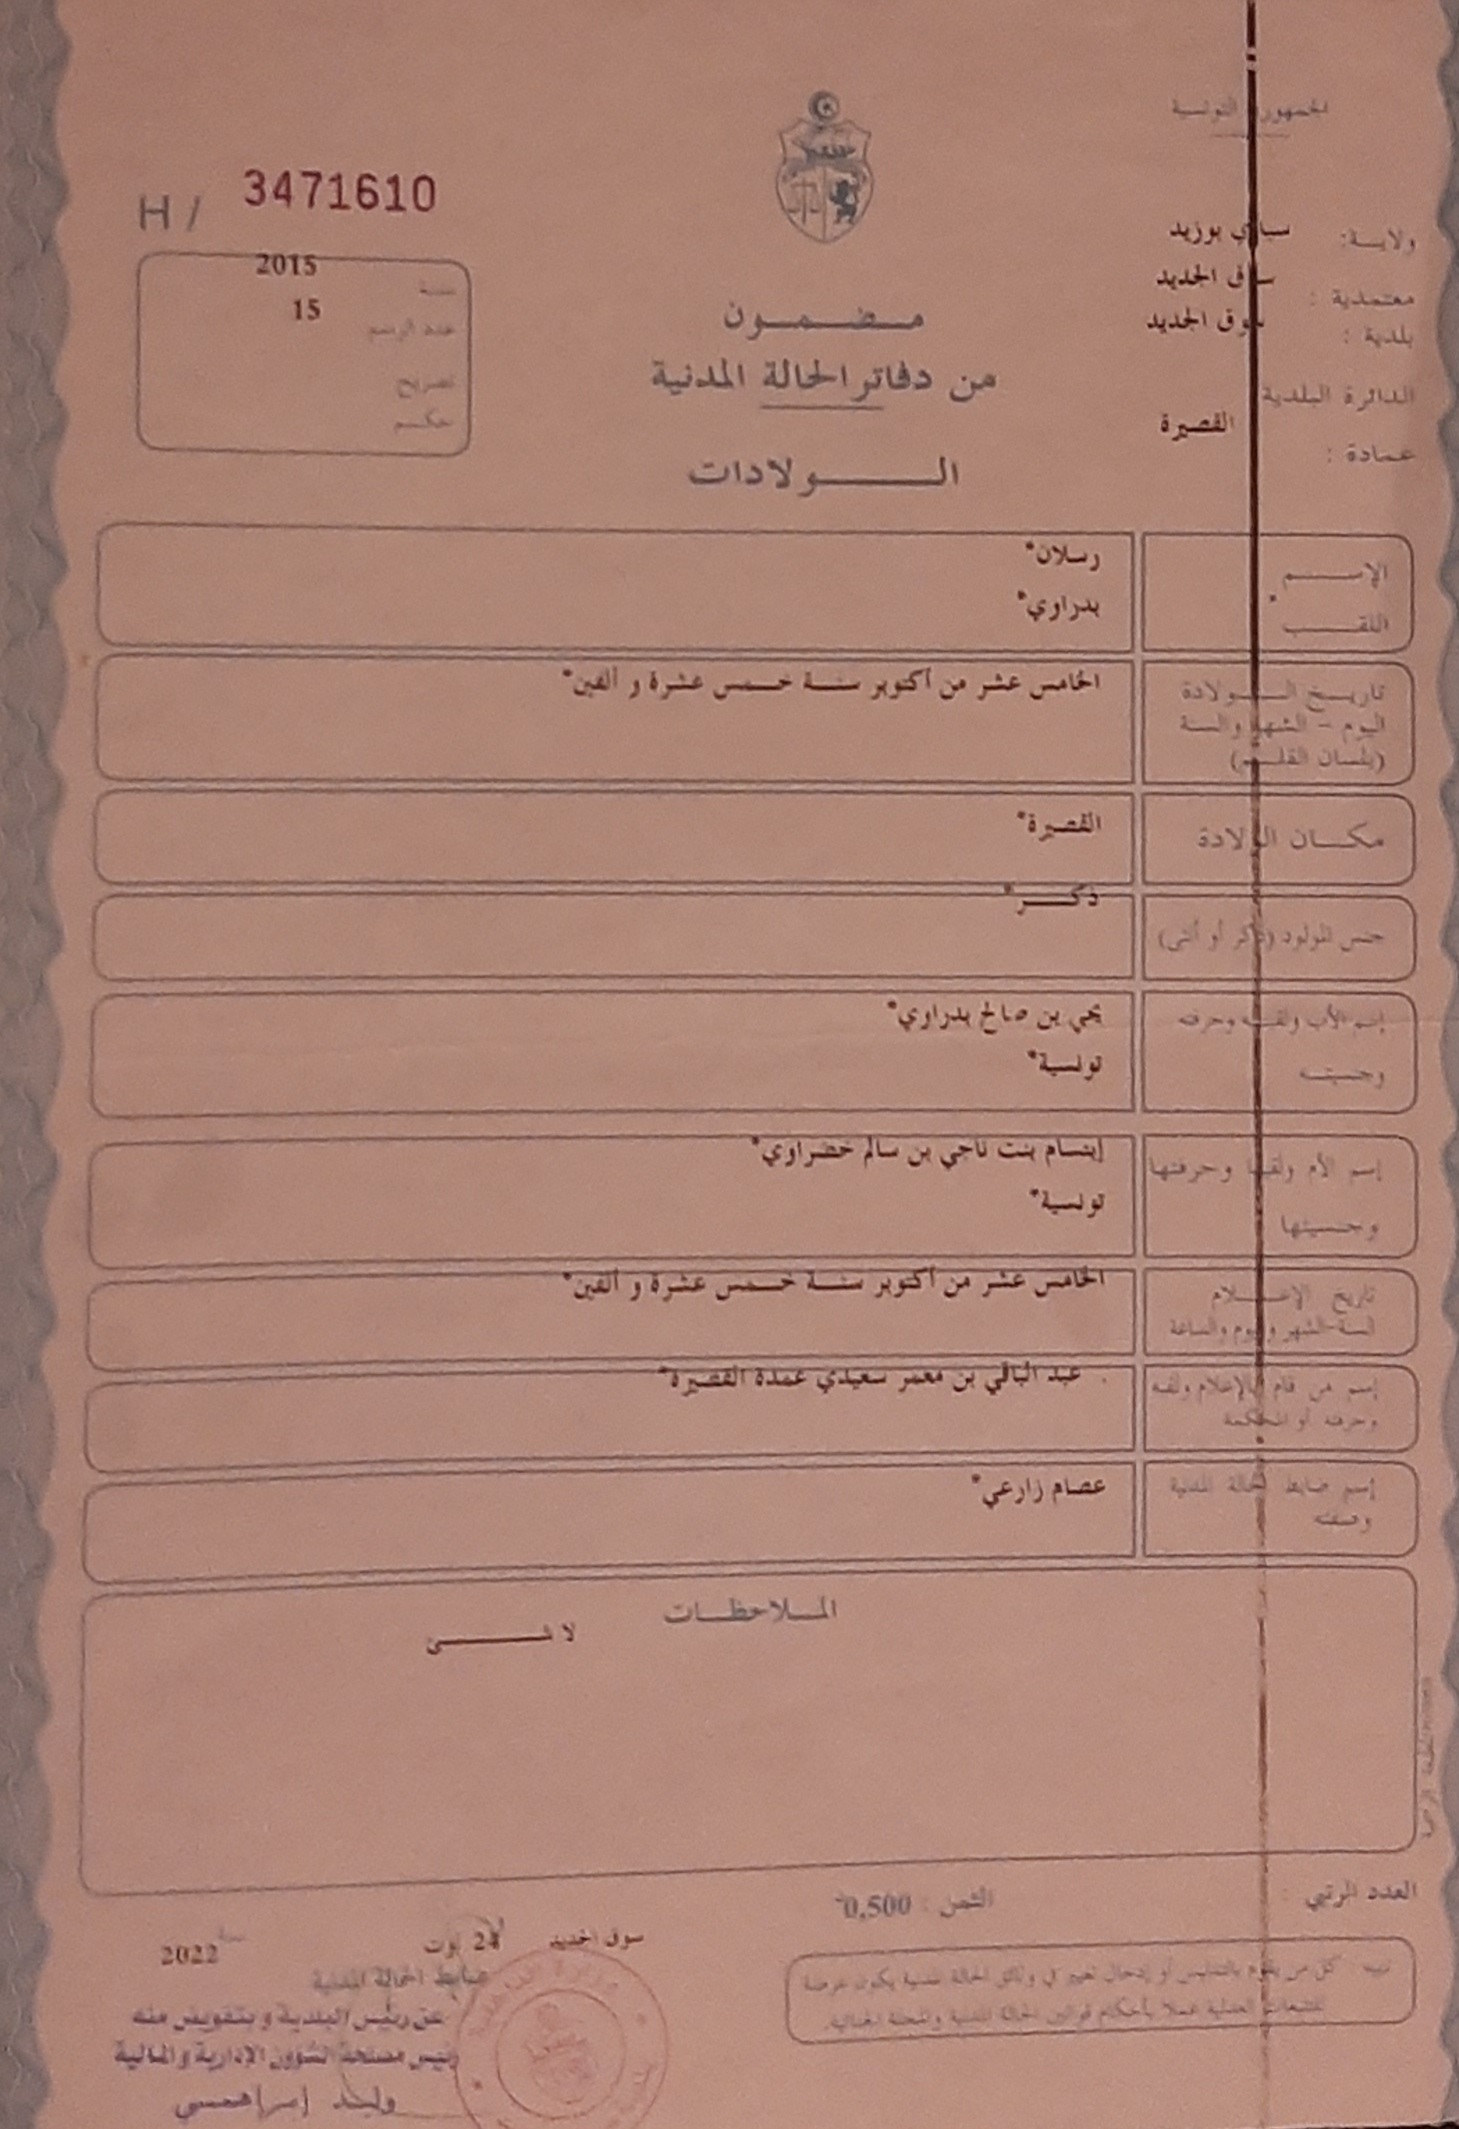 الجمهورية التونسية
H / 3471610
ولاية: سيدي بوزيد
معتمدية : سوق الجديد
بلدية : سوق الجديد
الدائرة البلدية
عمادة : القصيرة
سنة 2015
عدد الرسم 15
تصريح
حكم
مضمون
من دفاتر الحالة المدنية
الولادات
الإسم رسلان*
اللقب بدراوي*
تاريخ الولادة الخامس عشر من أكتوبر سنة خمس عشرة و ألفين*
اليوم - الشهر والسنة
(بلسان القلم)
مكان الولادة القصيرة*
جنس المولود (ذكر أو أنثى) ذكر*
إسم الأب ولقبه وحرفته يحي بن صالح بدراوي*
وجنسيته تونسية*
إسم الأم ولقبها وحرفتها إبتسام بنت ناجي بن سالم خضراوي*
وجنسيتها تونسية*
تاريخ الإعلام الخامس عشر من أكتوبر سنة خمس عشرة و ألفين*
السنة-الشهر واليوم والساعة
إسم من قام بالإعلام ولقبه عبد الباقي بن معمر سعيدي عمدة القصيرة*
وحرفته أو المحكمة
إسم ضابط الحالة المدنية عصام زارعي*
وصفته
الملاحظات
لا شئ
العدد الرتبي :
الثمن : 0,500
سوق الجديد 24 أوت سنة 2022
ضابط الحالة المدنية
عن رئيس البلدية و بتفويض منه
رئيس مصلحة الشؤون الإدارية والمالية
وليد إبراهمي
تنبيه : كل من يقوم بالتدليس أو إدخال تغيير في وثائق الحالة المدنية يكون عرضة
للتتبعات العدلية عملا بأحكام قوانين الحالة المدنية والمجلة الجنائية.